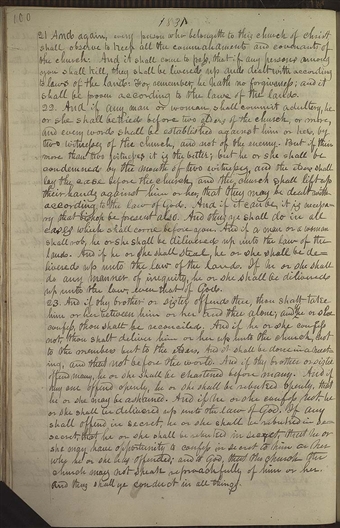 100
1831
21 And again, every person who belongeth to this church of Christ
shall observe to keep all the commandments and covenants of
the church. And it shall come to pass, that if any persons among
you shall kill, they shall be delivered up and dealt with according
to laws of the land: For remember, he hath no forgiveness; and it
shall be proven according to the laws of the land.
22. And if any man or woman shall commit adultery, he
or she shall be tried before two elders of the church, or more,
and every word shall be established against him or her by
two witnesses of the church, and not of the enemy. But if there
more than two witnesses it is the better; but he or she shall be
condemned by the mouth of two witnesses, and the elders shall
lay the case before the church, and the church shall lift up
their hands against him or her, that they may be dealt with
according to the law of God. And if it can be, it is necessary
that bishop be present also. And thus ye shall do in all
cases which shall come before you. And if a man or a woman
shall rob, he or she shall be delivered up unto the law of the
land. And if he or she shall steal, he or she shall be de
livered up unto the law of the land. If he or she shall
do any manner of iniquity, he or she shall be delivered
up unto the law, even that of God.
23 And if thy brother or sister offend thee, thou shalt take
him or her between him or her and thee alone; and he or she
confess, thou shalt be reconciled. And if he or she confess
not, thou shalt deliver him or her up unto the church, not
to the members but to the elders. And it shall be done in a meet
ing, and that not before the world. And if thy brother or sister
offend many, he or she shall be chastened before many. And if
any one offend openly, he or she shall be rebuked openly, that
he or she may be ashamed. And if he or she confess not, he
or she shall be delivered up unto the law of God. If any
shall offend in secret, he or she shall be rebuked in
secret, that he or she may have opportunity to confess in secret to him or her
who he or she has offended, and to God, that the church
may not speak reproachfully of him or her.
And thus shall ye conduct in all things.